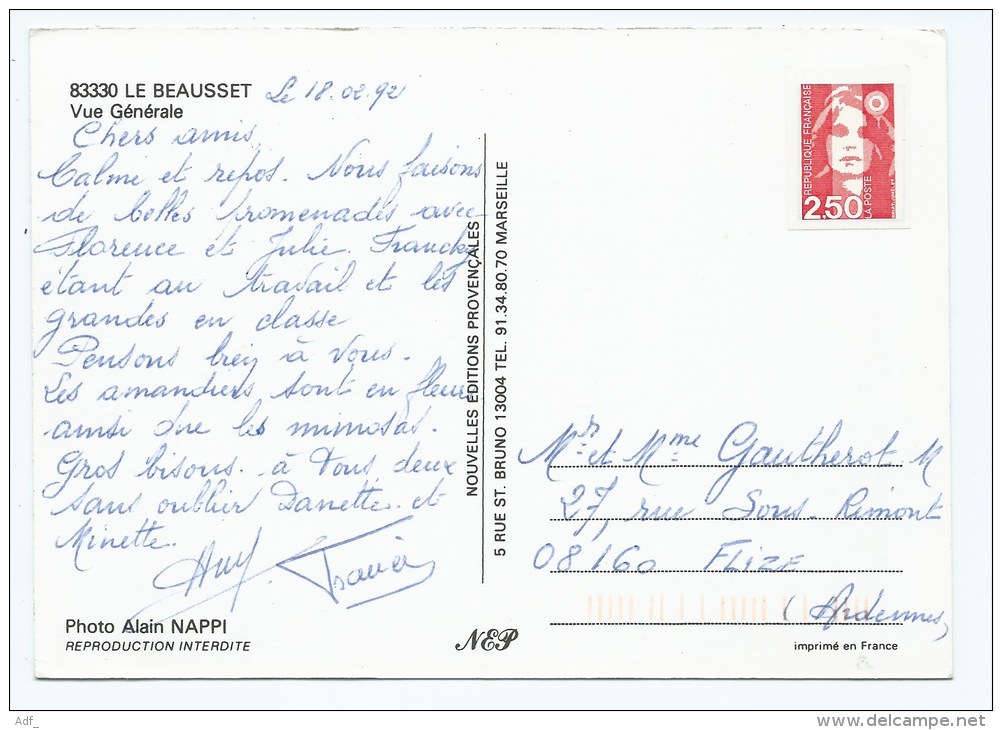 83330 LE BEAUSSET Le 18.02.92
Vue Générale
Chers amis,
Calme et repos. Nous faisons
de belles promenades avec
Florence et Julie. Francky
étant au travail et les
grandes en classe
Pensons bien à vous.
Les amandiers sont en fleurs
ainsi que les mimosas.
Gros bisous. à tous deux
sans oublier Danette. et
Minette.
Photo Alain NAPPI
REPRODUCTION INTERDITE
NOUVELLES EDITIONS PROVENÇALES
5 RUE ST. BRUNO 13004 TEL. 91.34.80.70 MARSEILLE
NEP
REPUBLIQUE FRANÇAISE
2.50
LA POSTE
Mr et Mme Gautherot M
27, rue Sous-Rimont
08160 FLIZE
(Ardennes)
imprimé en France
Adf_
delcampe.net